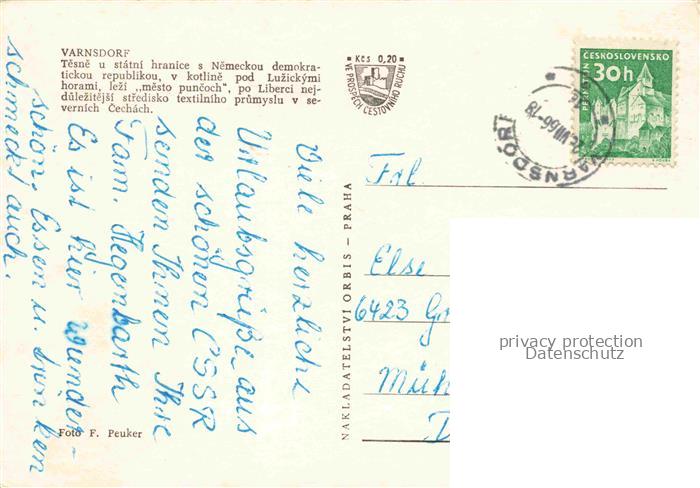 VARNSDORF
Těsně u státní hranice s Německou demokra-
tickou republikou, v kotlině pod Lužickými
horami, leží „město punčoch", po Liberci nej-
důležitější středisko textilního průmyslu v se-
verních Čechách.
Kčs 0,20
VE PROSPĚCH CESTOVNÍHO RUCHU
ČESKOSLOVENSKO
30h
PERNŠTEJN
VARNSDORF
Viele herzliche
Urlaubsgrüße aus
der schönen ČSSR
senden Ihnen Ihre
Fam. Hegenbarth
Es ist hier wunder-
schön. Essen u. trinken
schmeckt auch.
NAKLADATELSTVÍ ORBIS — PRAHA
Frl.
Else
6423 Gr
Müh
D
privacy protection
Datenschutz
Foto F. Peuker